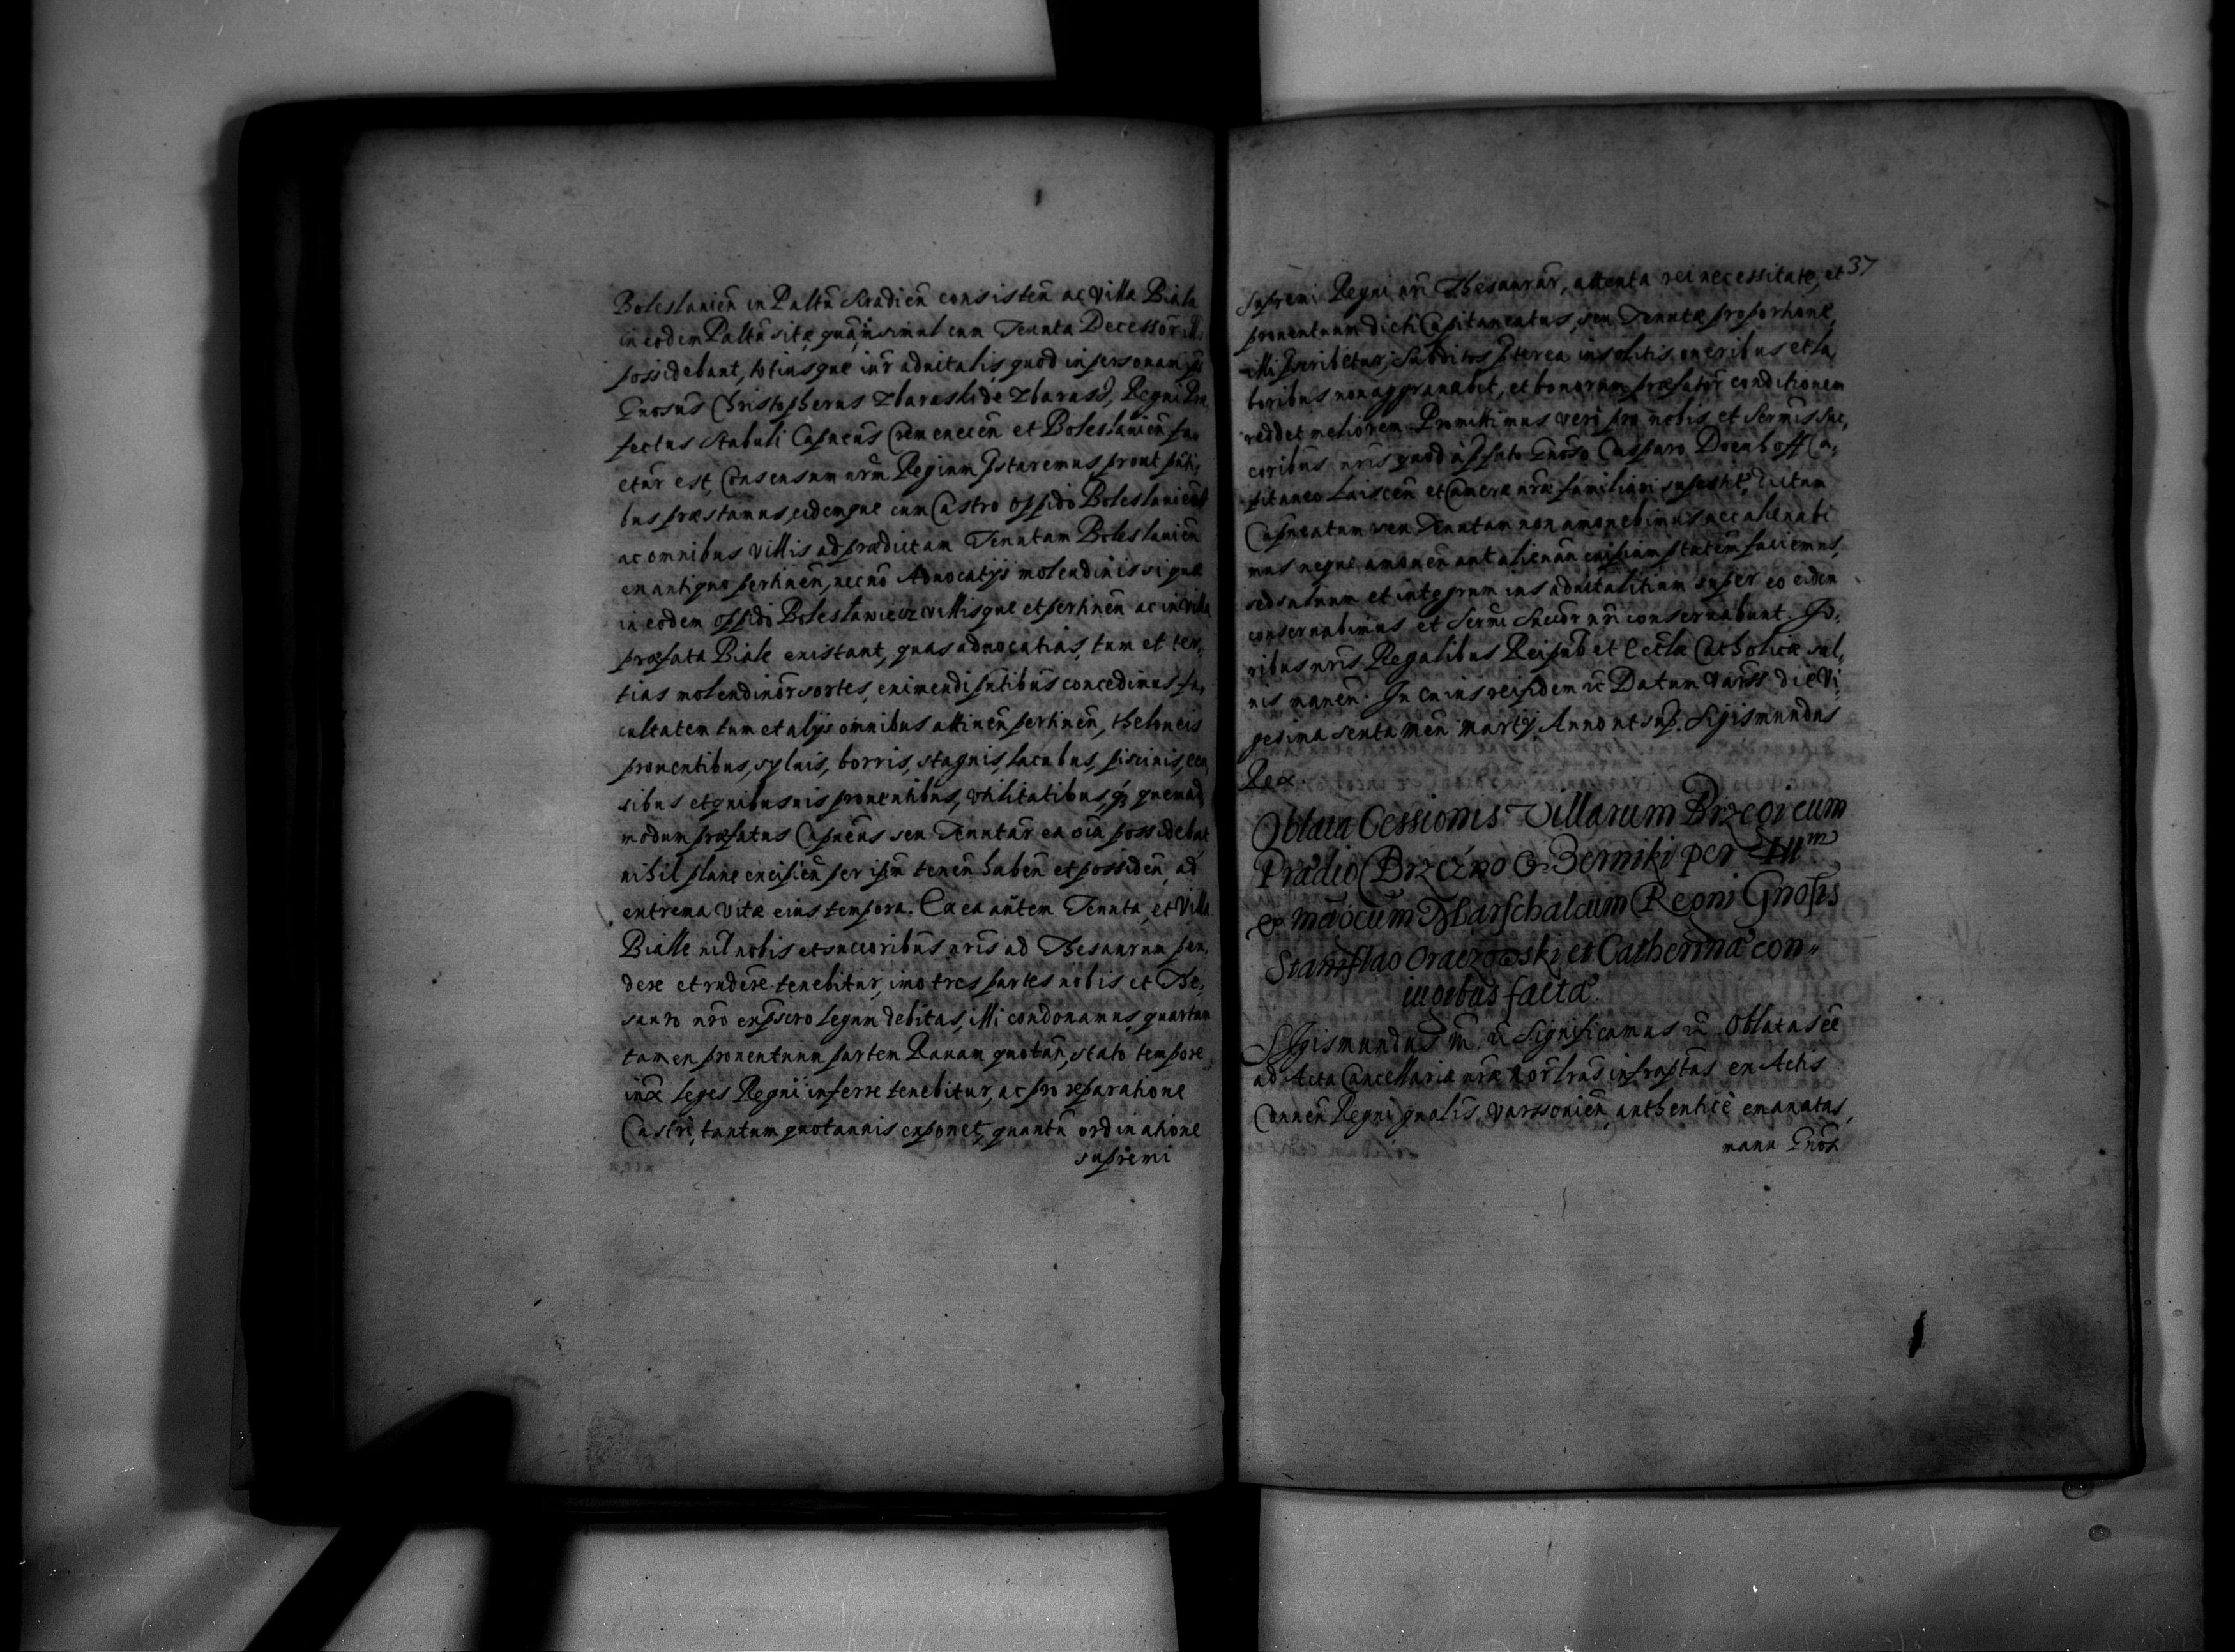 Boleslauien in Paltu Siradien consisten ac Villæ Biala
in eodem Paltu sitæ, quam simul cum Tenuta Decessor
possidebant, totiusque iur aduitalis, quod in personam
Gnosus Christophorus Zbaraski de Zbarass, Regni Præ,
fectus Stabuli Capneus Cremenecen et Boleslauien fun
ctur est, Consensum nrm Regium pstaremus, prout pnti,
bus præstamus, eidemque cum Castro oppido Boleslauien
ac omnibus Villis ad prædictam Tenutam Boleslauien
ex antiquo pertinen, necno Aduocatijs molendinis si quæ
in eodem oppido Boleslawiecz villisque et pertinen ac in Villa
præfata Biale existant, quas aduocatias, tum et ter,
tias molendinor sortes, eximendi pntibus concedimus fa,
cultatem tum et alijs omnibus attinen pertinen, theloneis
prouentibus, syluis, borris, stagnis, lacubus, piscinis, cen,
sibus et quibusuis prouentibus, vtilitatibus, qz quemad
modum præfatus Capneus seu Tenutar ea oia possidebat
nihil plane excipien per ipm tenen haben et possiden, ad
extrema vitæ eius tempora. Ex ea autem Tenuta, et Villa
Bialle nil nobis et succoribus nris ad Thesaurum pen,
dere et rndere tenebitur, imo tres partes nobis et The,
sauro nro ex pscro legum debitas, illi condonamus, quartam
tamen prouentuum partem Rauam quotan, stato tempore
iux leges Regni inferre tenebitur, ac pro reparatione
Castri, tantum quotannis exponet, quantu ordinatione
supremi
37
Supremi Regni nri Thesaurar, attenta rei necessitate, et
prouentuum dicti Capitaneatus, seu Tenutæ proportione,
illi pscribetur, Subditos pterea insolitis oneribus et la,
boribus non aggrauabit, et bonorum præfator conditionem
reddet meliorem. Promittimus vero pro nobis et Sermis suc,
coribus nris quod a pfato Gnoso Casparo Doenhoff Ca,
pitaneo Laiscen et Cameræ nræ familiari superstite, dictum
Capneatum seu Tenutam non amouebimus nec alienabi
mus neque amouen aut alienan cuipiam ptatem faciemus,
sed saluum et integrum ius aduitalitium super eo eidem
conseruabimus et Sermi Succor nri conseruabunt. Ju,
ribus nris Regalibus Reipub et Ecclæ Catholicæ sal,
uis manen. In cuius rei fidem &c Datum Varss die Vi,
gesima sexta Men Martij Anno ut sup. Sigismundus
Rex.
Oblata Cessionis Villarum Brzegi cum
Prædio Brzezno & Zerniki per Ill m
& mdocum Marschalcum Regni Gnosis
Stanislao Oraczowski et Catherina con,,
iugibus facta.
Sigismundus III &c Significamus &c Oblatas ee
ad Acta Cancellariæ nræ Mor lras infraptas ex Actis
Conuen Regni gnalis Varssouien authenticè emanatas,
manu Gnosi